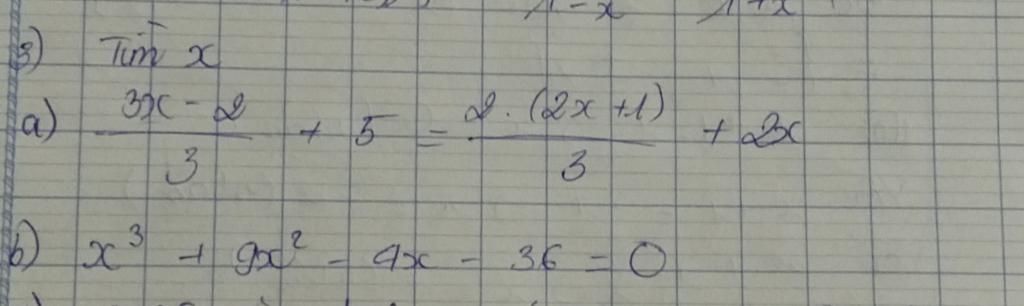 1 - x 1 + x
3) Tìm x
a) \frac{3x - 2}{3} + 5 = \frac{2 . (2x + 1)}{3} + 2x
b) x³ + 9x² - 4x - 36 = 0